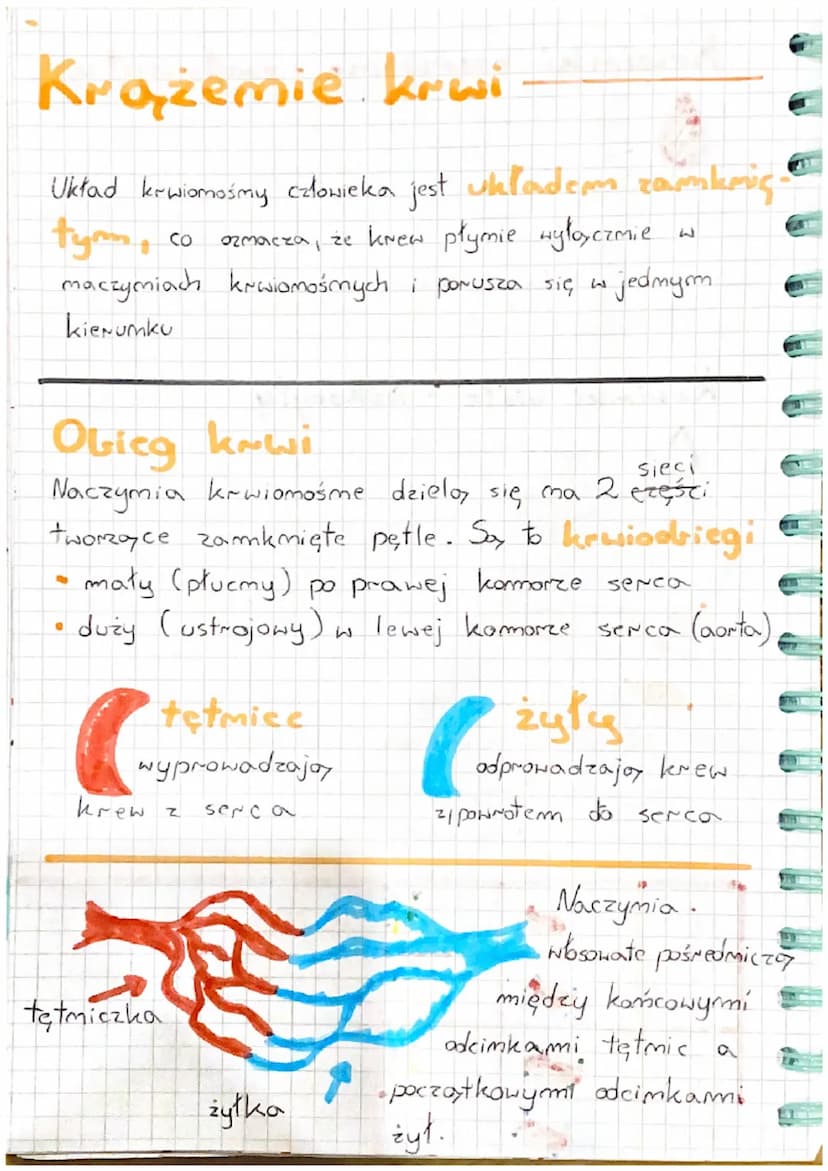 Krążenie krwi
Układ krwionośny człowieka jest układem zamknię-
tym, co oznacza, że krew płynie wyłącznie w
naczyniach krwionośnych i porusza się w jednym
kierunku
Obieg krwi
Naczynia krwionośne dzielą się na 2 części sieci
tworzące zamknięte pętle. Są to krwiobiegi
• mały (płucny) po prawej komorze serca
• duży (ustrojowy) w lewej komorze serca (aorta)
tętnice
wyprowadzają
krew z serca
żyły
odprowadzają krew
z powrotem do serca
Naczynia
włosowate pośredniczą
między końcowymi
odcinkami tętnic a
początkowymi odcinkami
żył.
tętniczka
żyłka